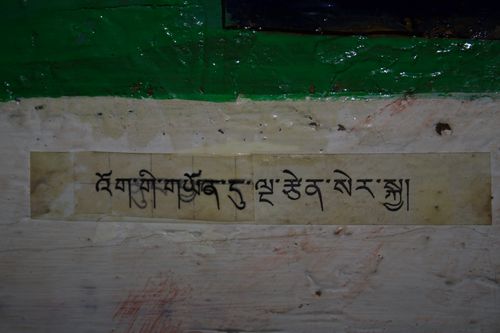 འོག་གི་གཡོན་དུ་ལྔ་རྩེན་སེར་སྐྱ།